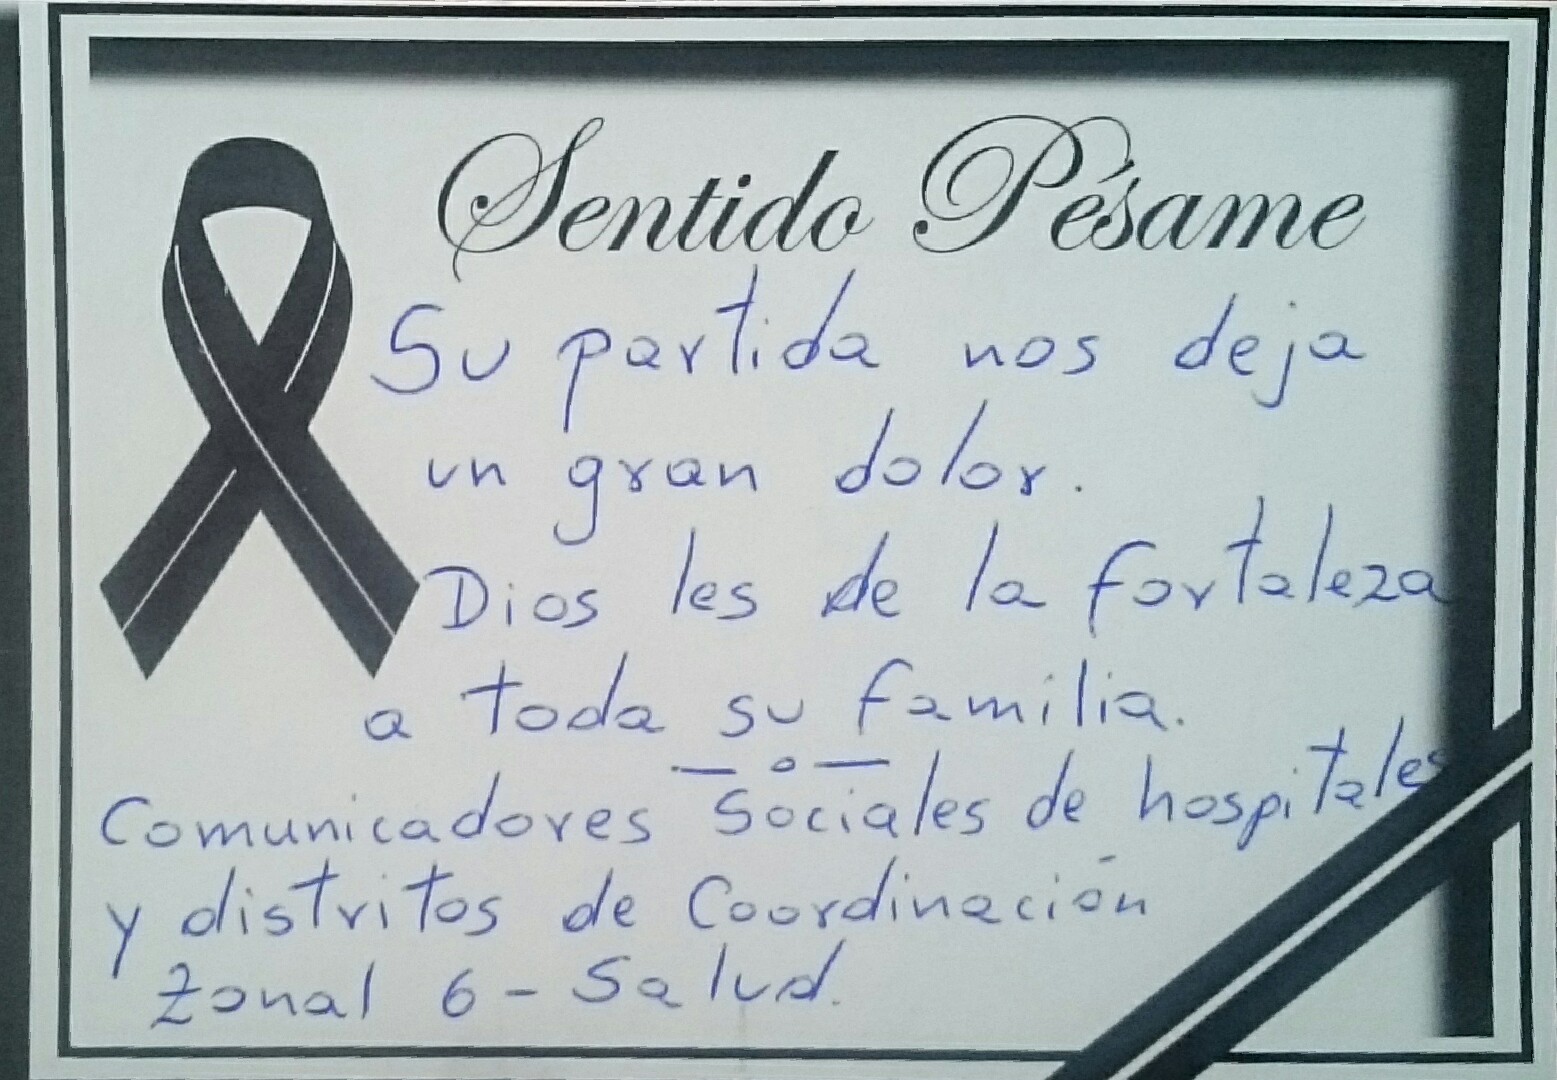 Sentido Pésame
Su partida nos deja
un gran dolor.
Dios les de la fortaleza
a toda su familia.
—o—
Comunicadores Sociales de hospitales
y distritos de Coordinación
Zonal 6 - Salud.